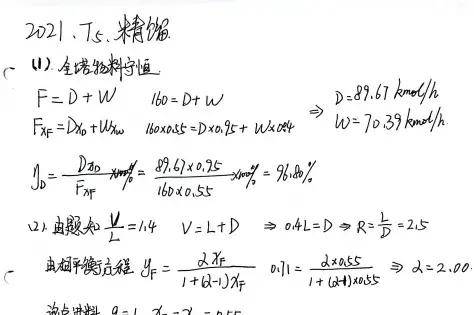 2021. T5. 精馏
(1). 全塔物料守恒
F = D + W 160 = D + W ⇒ D = 89.67 kmol/h
FxF = DxD + WxW 160×0.55 = D×0.95 + W×0.04 W = 70.39 kmol/h
ηD = DxD/FxF ×100% = 89.67×0.95/160×0.55 ×100% = 96.80%
(2). 由题知 V/L = 1.4 V = L + D ⇒ 0.4L = D ⇒ R = L/D = 2.5
由相平衡方程 yF = αxF/1+(α-1)xF 0.71 = α×0.55/1+(α-1)×0.55 ⇒ α = 2.00
泡点进料 q = 1 xq = xF = 0.55